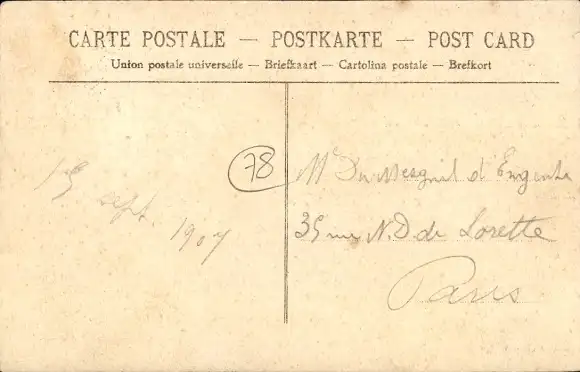 CARTE POSTALE — POSTKARTE — POST CARD
Union postale universelle — Briefkaart — Cartolina postale — Brefkort
78
15
sept. 1907
Mr Du Mesgnil d'Engente
35 rue N.D de Lorette
Paris